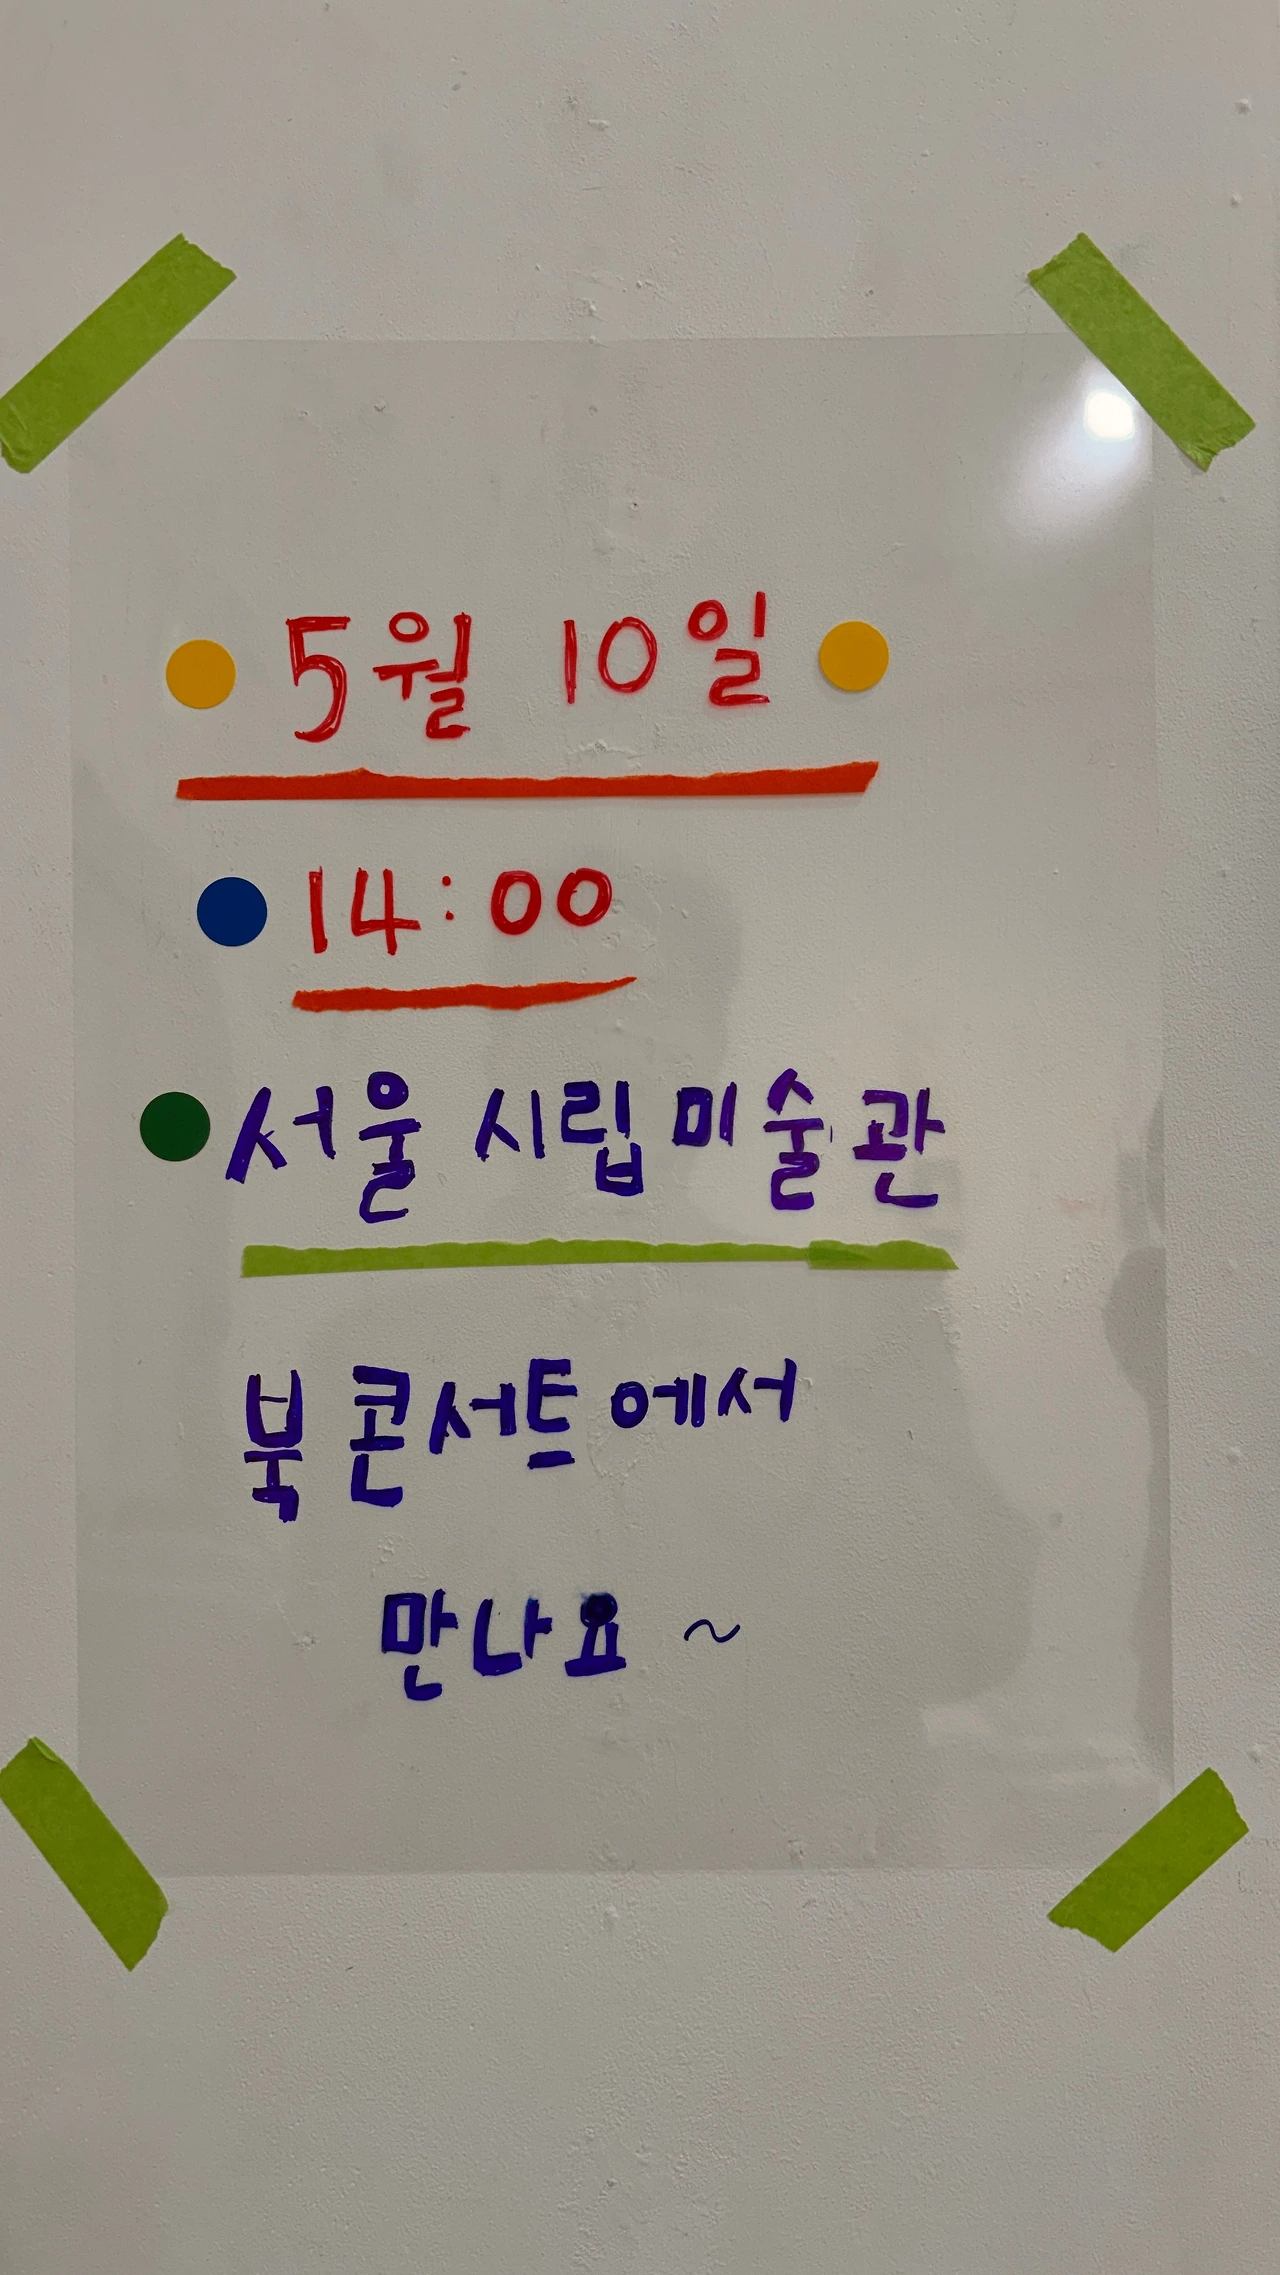 5월 10일
14:00
서울 시립 미술관
북 콘서트에서
만나요 ~